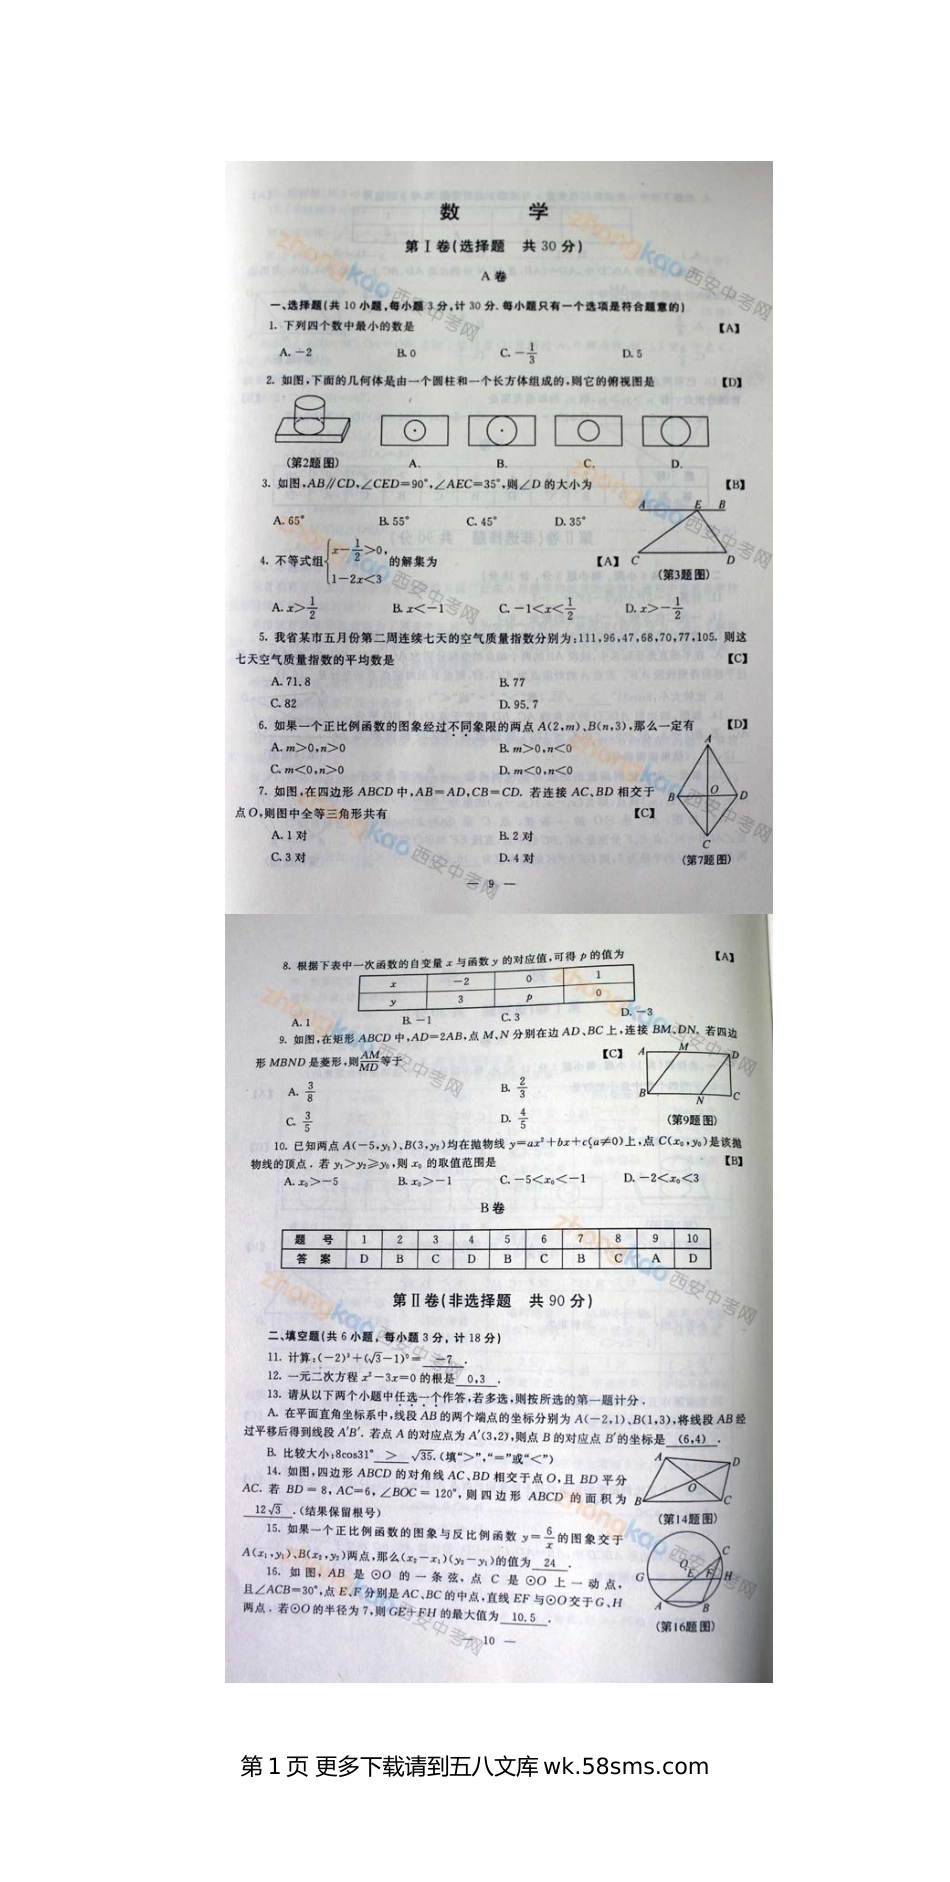 数 学
第Ⅰ卷(选择题 共30分)
A卷
一、选择题(共10小题,每小题3分,计30分.每小题只有一个选项是符合题意的)
1. 下列四个数中最小的数是 【A】
A. -2 B. 0 C. -1/3 D. 5
2. 如图,下面的几何体是由一个圆柱和一个长方体组成的,则它的俯视图是 【D】
(第2题图) A. B. C. D.
3. 如图,AB∥CD,∠CED=90°,∠AEC=35°,则∠D的大小为 【B】
A E B
A. 65° B. 55° C. 45° D. 35°
C D
(第3题图)
4. 不等式组{x-1/2>0, 1-2x<3 的解集为 【A】
A. x>1/2 B. x<-1 C. -1<x<1/2 D. x>-1/2
5. 我省某市五月份第二周连续七天的空气质量指数分别为:111,96,47,68,70,77,105. 则这
七天空气质量指数的平均数是 【C】
A. 71.8 B. 77
C. 82 D. 95.7
6. 如果一个正比例函数的图象经过不同象限的两点A(2,m)、B(n,3),那么一定有 【D】
A. m>0,n>0 B. m>0,n<0
C. m<0,n>0 D. m<0,n<0
7. 如图,在四边形ABCD中,AB=AD,CB=CD. 若连接AC、BD相交于
点O,则图中全等三角形共有 【C】
A. 1对 B. 2对
C. 3对 D. 4对
A
B O D
C
(第7题图)
— 9 —
8. 根据下表中一次函数的自变量x与函数y的对应值,可得p的值为 【A】
x -2 0 1
y 3 p 0
A. 1 B. -1 C. 3 D. -3
9. 如图,在矩形ABCD中,AD=2AB,点M、N分别在边AD、BC上,连接BM、DN. 若四边
形MBND是菱形,则AM/MD等于 【C】
A. 3/8 B. 2/3
C. 3/5 D. 4/5
A M D
B N C
(第9题图)
10. 已知两点A(-5,y₁)、B(3,y₂)均在抛物线y=ax²+bx+c(a≠0)上,点C(x₀,y₀)是该抛
物线的顶点. 若y₁>y₂≥y₀,则x₀的取值范围是 【B】
A. x₀>-5 B. x₀>-1 C. -5<x₀<-1 D. -2<x₀<3
B卷
题 号 1 2 3 4 5 6 7 8 9 10
答 案 D B C D B C B C A D
第Ⅱ卷(非选择题 共90分)
二、填空题(共6小题,每小题3分,计18分)
11. 计算:(-2)³+(√3-1)⁰= -7 .
12. 一元二次方程x²-3x=0的根是 0,3 .
13. 请从以下两个小题中任选一个作答,若多选,则按所选的第一题计分.
A. 在平面直角坐标系中,线段AB的两个端点的坐标分别为A(-2,1)、B(1,3),将线段AB经
过平移后得到线段A′B′. 若点A的对应点为A′(3,2),则点B的对应点B′的坐标是 (6,4) .
B. 比较大小:8cos31° > √35.(填“>”,“=”或“<”)
14. 如图,四边形ABCD的对角线AC、BD相交于点O,且BD平分
AC. 若BD=8,AC=6,∠BOC=120°,则四边形ABCD的面积为
12√3 .(结果保留根号)
A D
O
B C
(第14题图)
15. 如果一个正比例函数的图象与反比例函数y=6/x的图象交于
A(x₁,y₁)、B(x₂,y₂)两点,那么(x₂-x₁)(y₂-y₁)的值为 24 .
16. 如图,AB是⊙O的一条弦,点C是⊙O上一动点,
且∠ACB=30°,点E、F分别是AC、BC的中点,直线EF与⊙O交于G、H
两点. 若⊙O的半径为7,则GE+FH的最大值为 10.5 .
C
O
G E F H
A B
(第16题图)
— 10 —
zhongkao 西安中考网
第 1 页 更多下载请到五八文库 wk.58sms.com